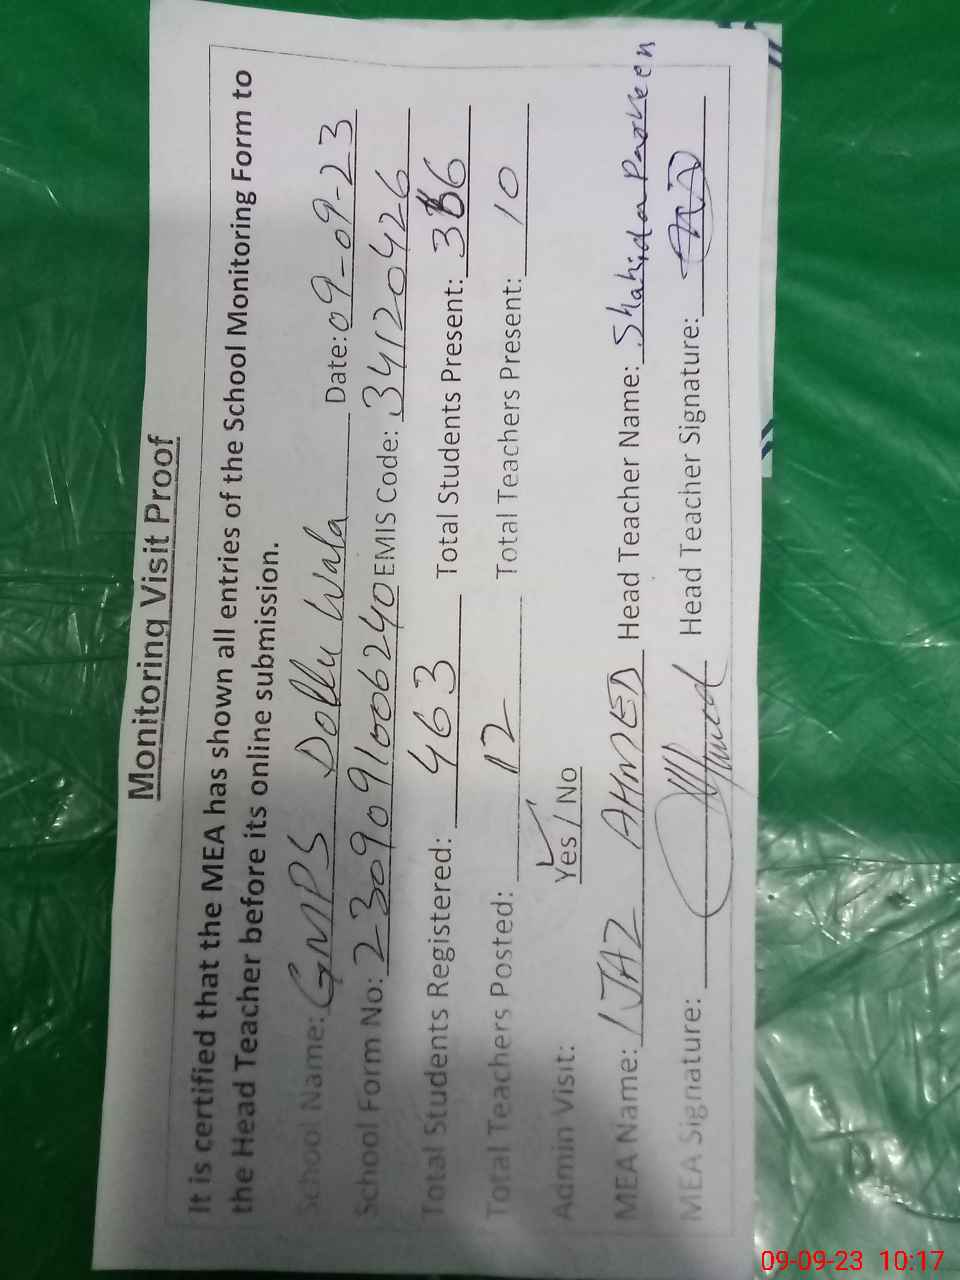 Monitoring Visit Proof
It is certified that the MEA has shown all entries of the School Monitoring Form to
the Head Teacher before its online submission.
School Name: GMPS Dollu Wala Date: 09-09-23
School Form No: 2309091006240 EMIS Code: 34120426
Total Students Registered: 463 Total Students Present:
Total Teachers Posted: 12 Total Teachers Present: 10
Admin Visit: Yes / No
MEA Name: IJAZ AHMED Head Teacher Name: Shahida Parveen
MEA Signature: Head Teacher Signature:
09-09-23 10:17